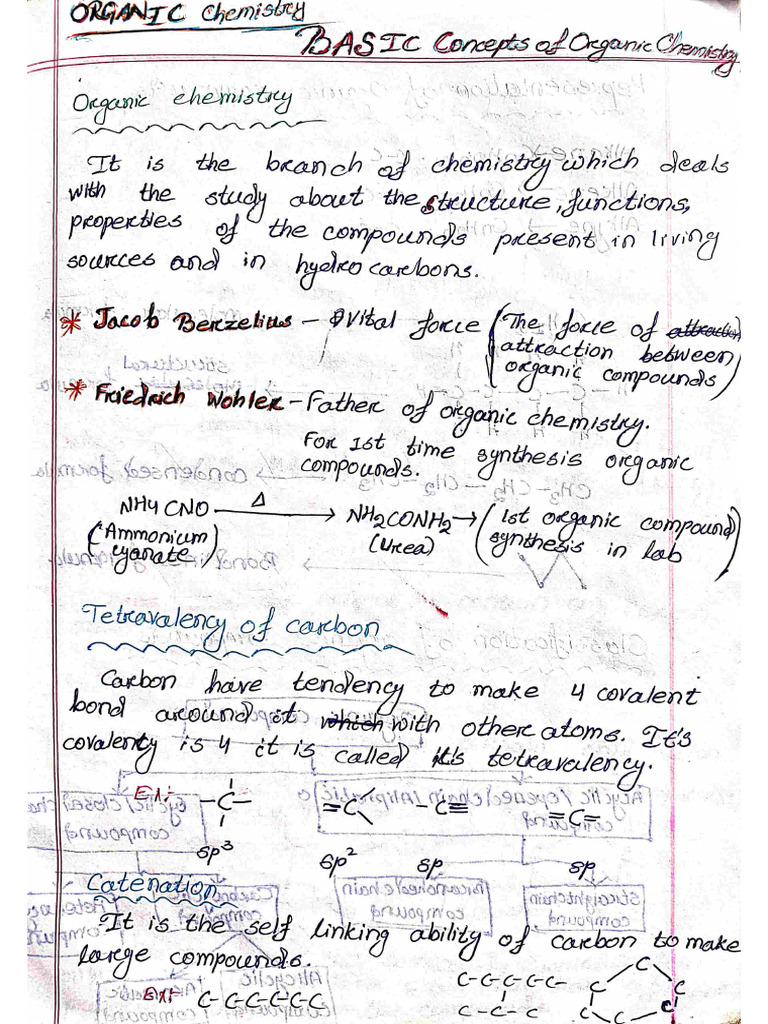 ORGANIC Chemistry
BASIC Concepts of Organic Chemistry
Organic chemistry
It is the branch of chemistry which deals
with the study about the structure, functions,
properties of the compounds present in living
sources and in hydrocarbons.
* Jacob Berzelius - Vital force (The force of attraction
attraction between
organic compounds)
* Friedrich Wohler - Father of organic chemistry.
For 1st time synthesis organic
compounds.
NH4CNO —Δ→ NH2CONH2 → (1st organic compound
(Ammonium cyanate) (Urea) synthesis in lab)
Tetravalency of carbon
Carbon have tendency to make 4 covalent
bond around it which with other atoms. It's
covalenty is 4 it is called it's tetravalency.
Ex: -C- =C -C≡ =C=
sp3 sp2 sp sp
Catenation
It is the self linking ability of carbon to make
large compounds.
Ex: C-C-C-C-C-C C-C-C-C-C C C C
C-C-C C C C